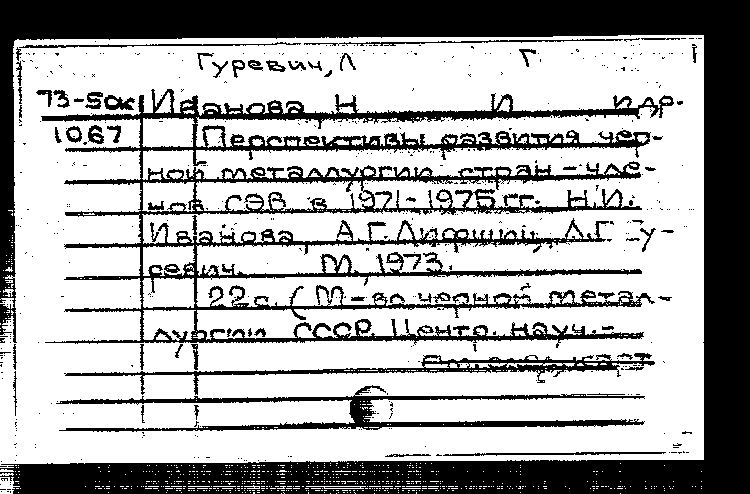 Гуревич, Л Г
73-50к Иванова Н И и др.
1067 Перспективы развития чер-
ной металлургии стран-чле-
нов СЭВ в 1971-1975 гг. Н.И.
Иванова, А.Г. Лифшиц, Л.Г Гу-
ревич. М., 1973.
22 с. (М-во черной метал-
лургии СССР. Центр. науч.-